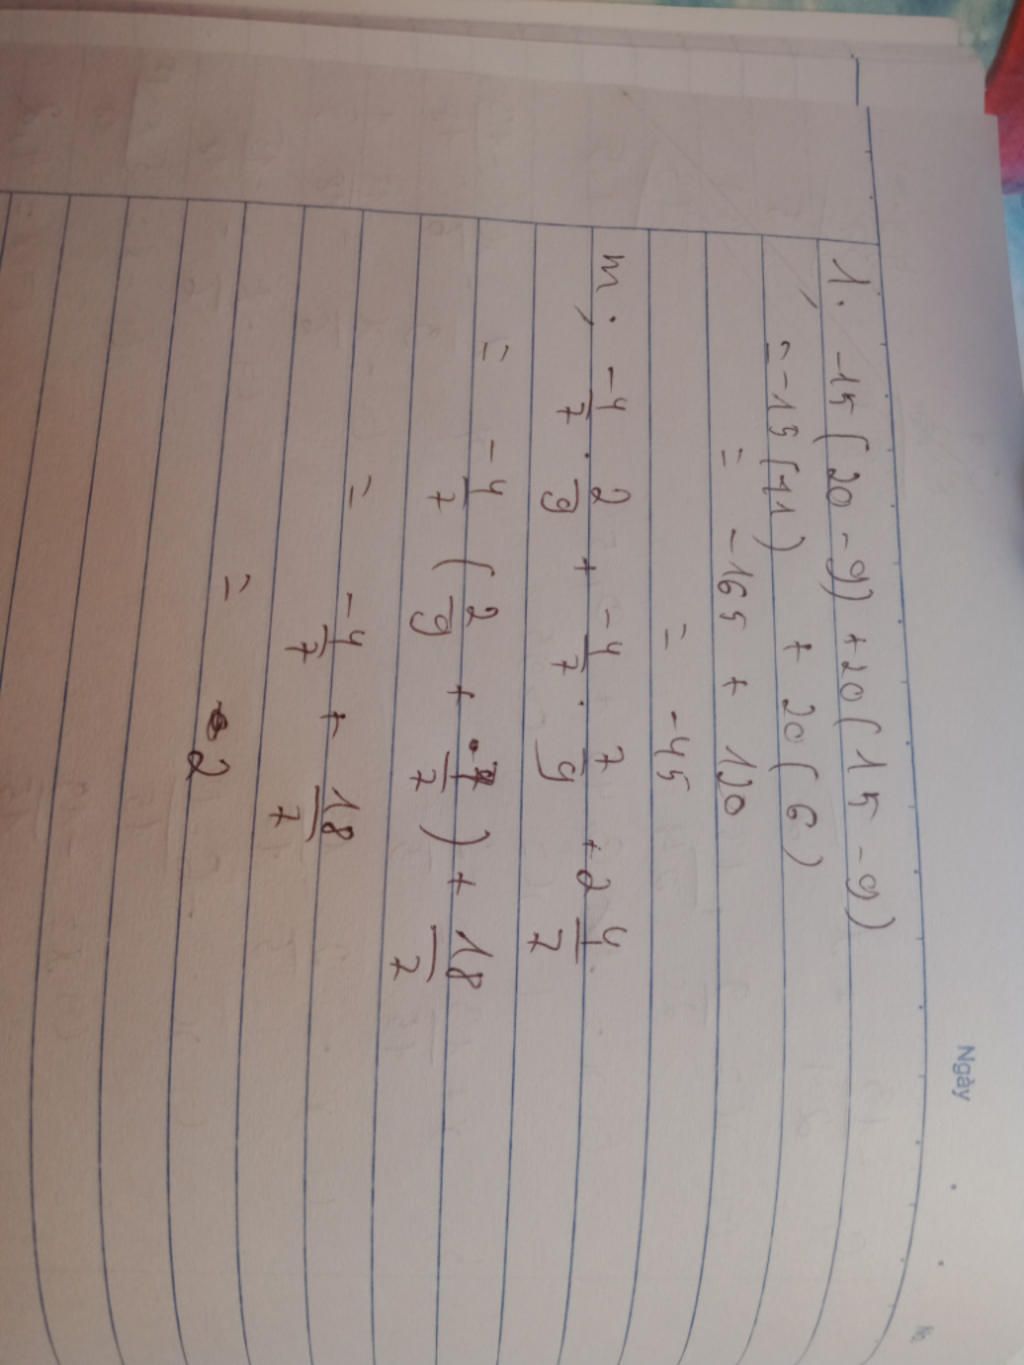 Ngày
1. -15(20 - 9) + 20(15 - 9)
= -15(11) + 20(6)
= -165 + 120
= -45
m, . -4/7 . 2/9 + -4/7 . 7/9 + 2 4/7
= -4/7 (2/9 + 7/7) + 18/7
= -4/7 + 18/7
= 2